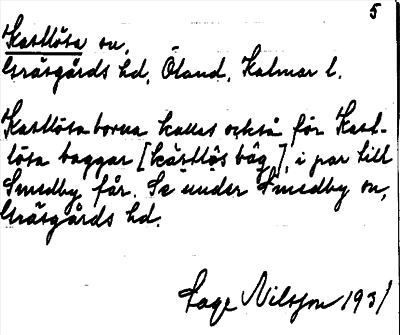 5
Kastlösa sn,
Gräsgårds hd, Öland, Kalmar l.
Kastlösa borna kallas också för Kast-
lösa baggar [kàstlø̀s bag], i par till
Smedby får. Se under Smedby sn,
Gräsgårds hd.
Sage Nilsson 1931